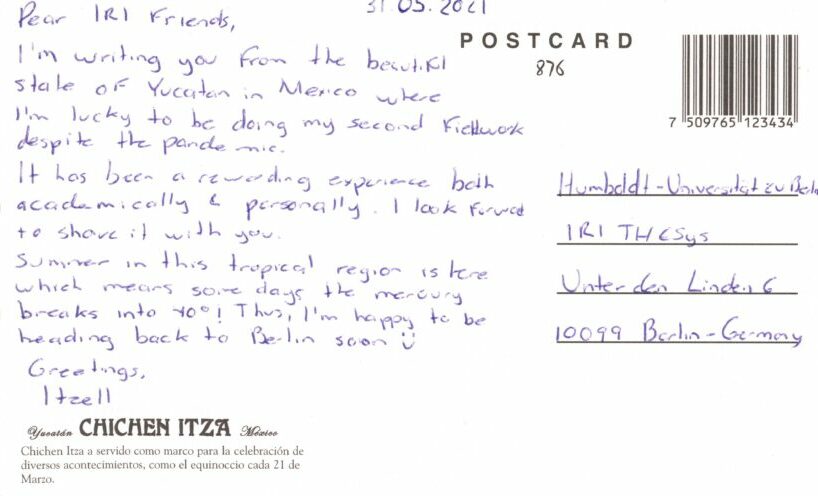 31.05.2021
Dear IRI Friends,
I'm writing you from the beautiful
state of Yucatan in Mexico where
I'm lucky to be doing my second fieldwork
despite the pandemic.
It has been a rewarding experience both
academically & personally. I look forward
to share it with you.
Summer in this tropical region is here
which means some days the mercury
breaks into 40°! Thus, I'm happy to be
heading back to Berlin soon ü
Greetings,
Itzell
Yucatán CHICHEN ITZA México
Chichen Itza a servido como marco para la celebración de
diversos acontecimientos, como el equinoccio cada 21 de
Marzo.
POSTCARD
876
7 509765 123434
Humboldt-Universität zu Berlin
IRI THESys
Unter den Linden 6
10099 Berlin-Germany